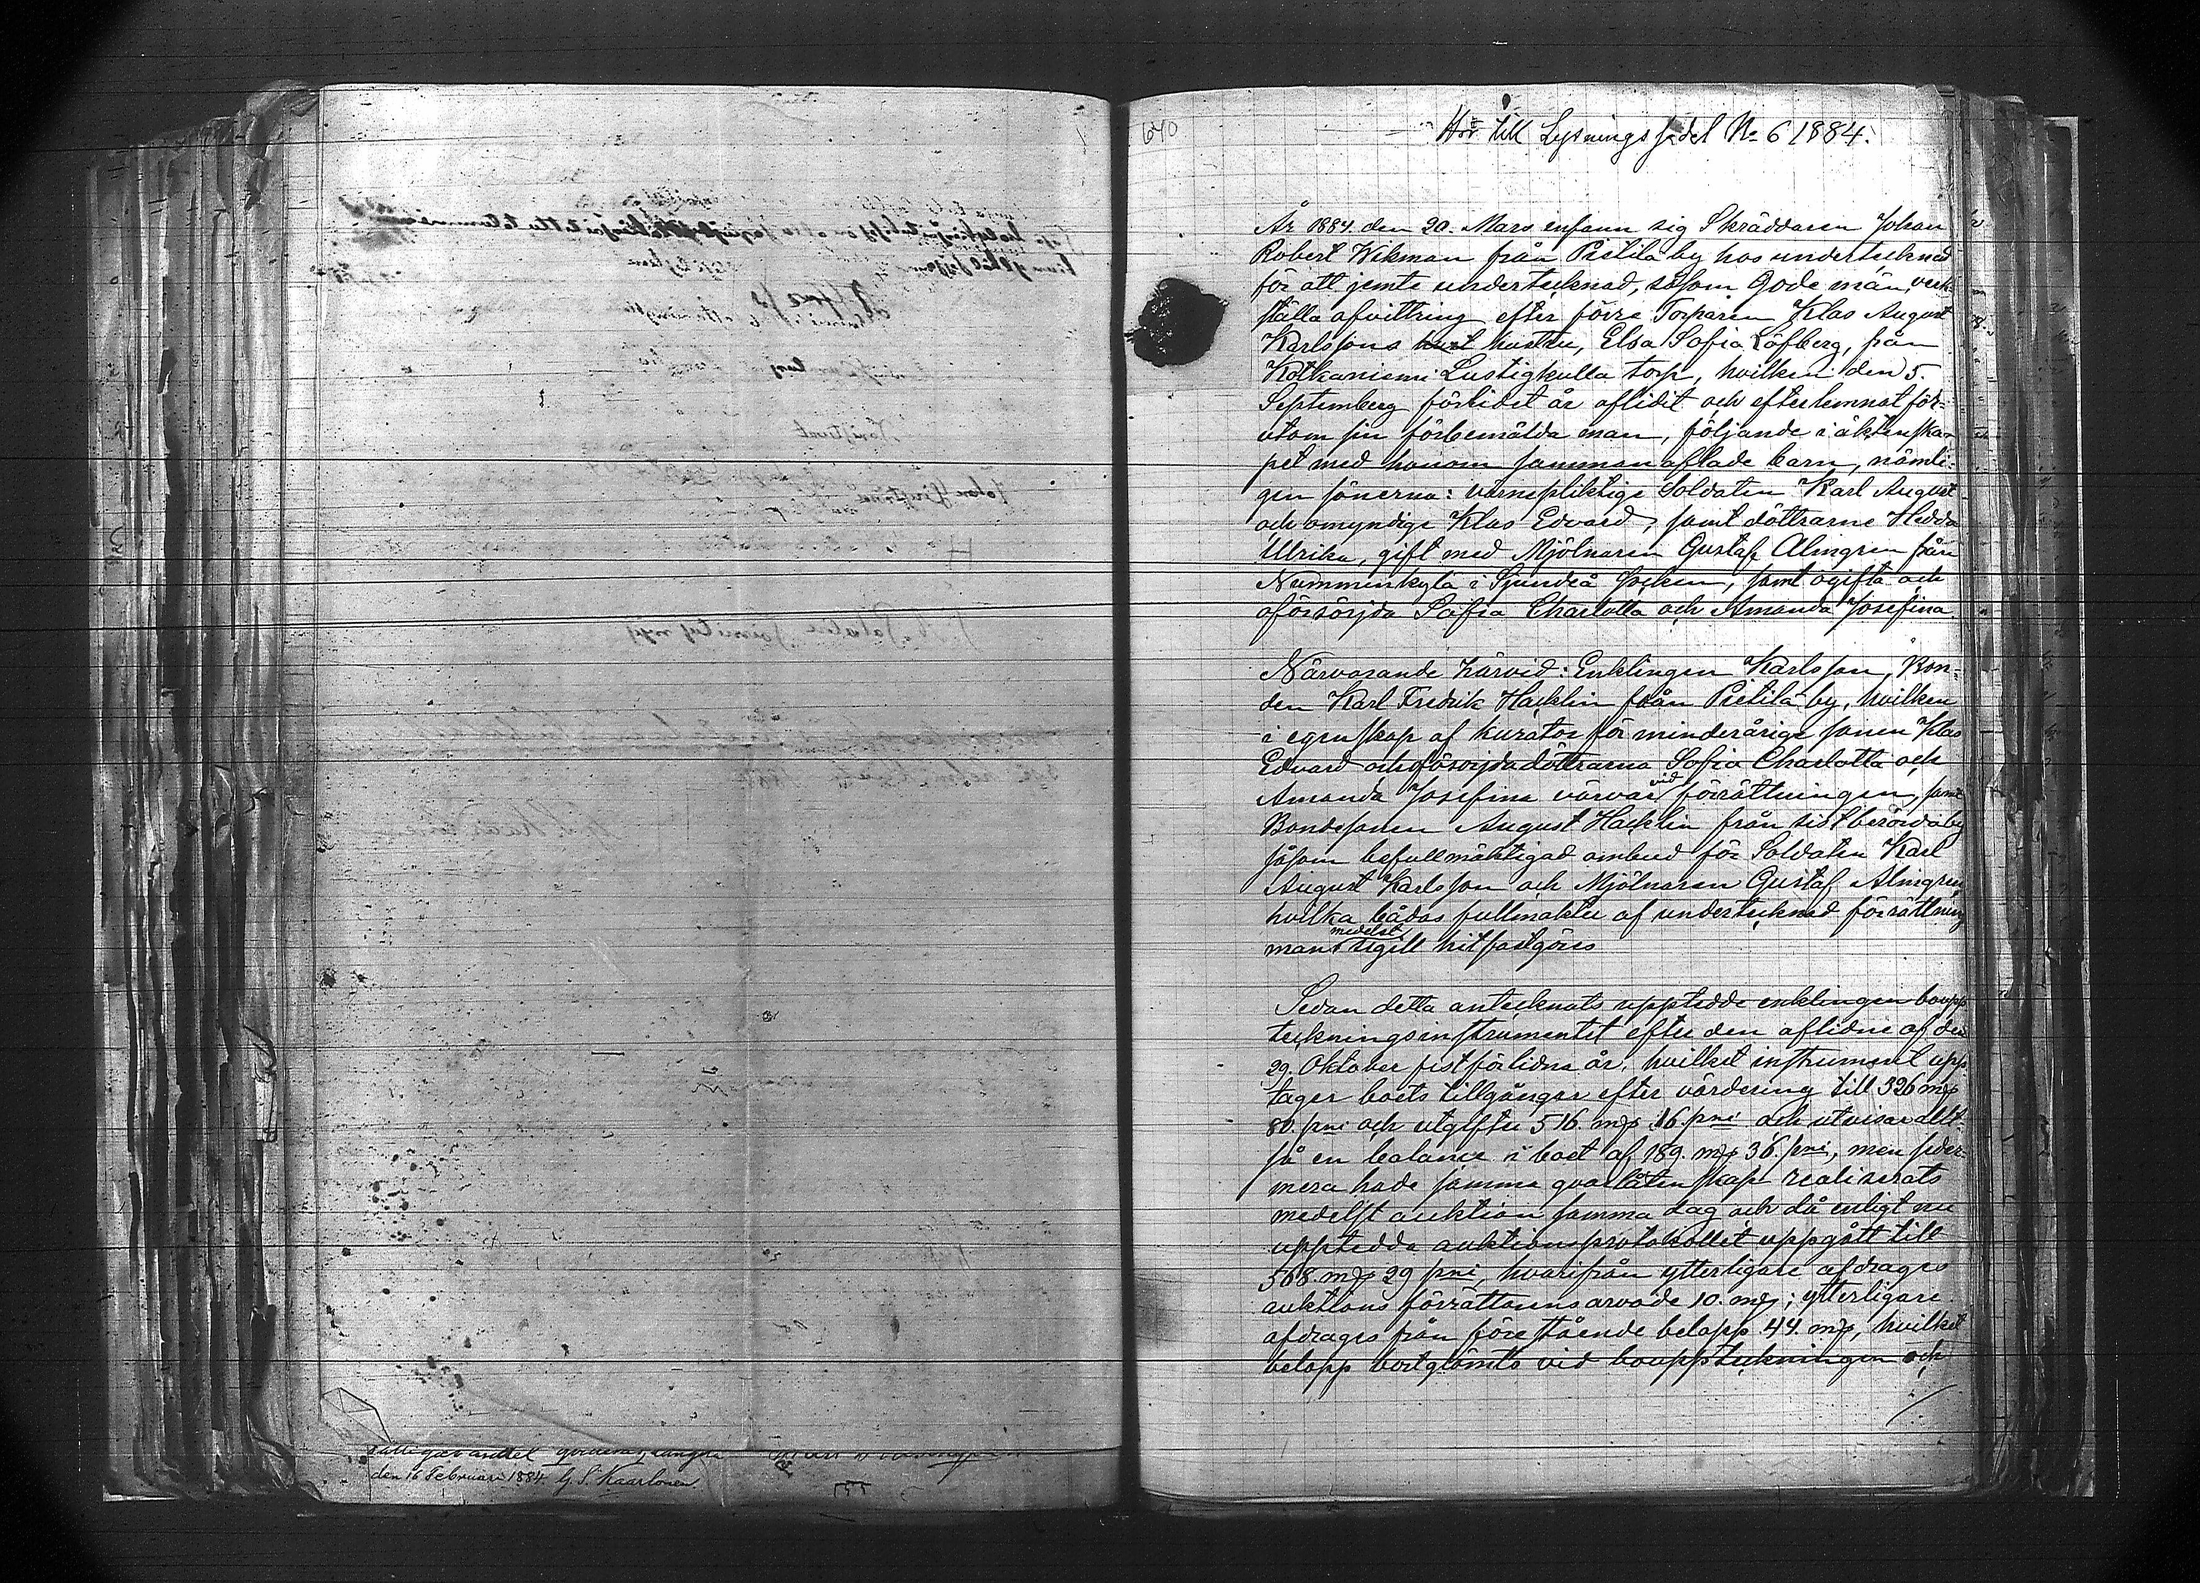 640
Hör till Lysningssedel No 6 1884.
År 1884 den 20. Mars enfann sig Skräddaren Johan
Robert Wikman från Pietilä by hos undertecknad
för att jemte undertecknad, såsom Gode män, verk-
ställa afvittring efter förre Torparen Klas August
Karlssons hustru, Elsa Sofia Löfberg, från
Kotkaniemi Lustigkulla torp, hvilken den 5.
September förlidet år aflidit och efterlemnat för-
utom sin förbemälda man, följande i äktenska-
pet med honom sammanaflade barn, nämli-
gen sönerna: värnepliktige Soldaten Karl August
och omyndige Klas Edvard, samt döttrarne Hedda
Ulrika, gift med Mjölnaren Gustaf Almgren från
Numminkylä i Sjundeå socken, samt ogifta och
oförsörjda Sofia Charlotta och Amanda Josefina
Närvarande härvid: Enklingen Karlsson, Bon-
den Karl Fredrik Hacklin från Pietilä by, hvilken
i egenskap af kurator för minderårige sonen Klas
Edvard och oförsörjda döttrarna Sofia Charlotta och
Amanda Josefina närvar vid förrättningen, samt
Bondesonen August Hacklin från sistberörda by
såsom befullmäktigad ombud för Soldaten Karl
August Karlsson och Mjölnaren Gustaf Almgren
hvilka bådas fullmakter af undertecknad förrättning
man medelst sigill hitfastgöres
Sedan detta antecknats upptedde enklingen boupp
teckningsinstrumentet efter den aflidne af den
29. Oktober sistförlidne år, hvilket instrument upp
tager boets tillgångar efter värdering till 326 mk
80. pni och utgifter 516. mk 16. pni och utvisar allt-
så en balance i boet af 189. mk 36. pni, men seder
mera hade samma qvarlåtenskap realiserats
medelst auktion samma dag och då enligt nu
uppteddа auktionsprotokollet uppgått till
568. mk 29 pni, hvarifrån ytterligare afdrages
auktions förrättarens arvode 10. mk; ytterligare
afdrages från förestående belopp 44. mk, hvilket
belopp bortglömts vid bouppteckningen och
den 16 Februari 1884 G. S. Kaarlonen